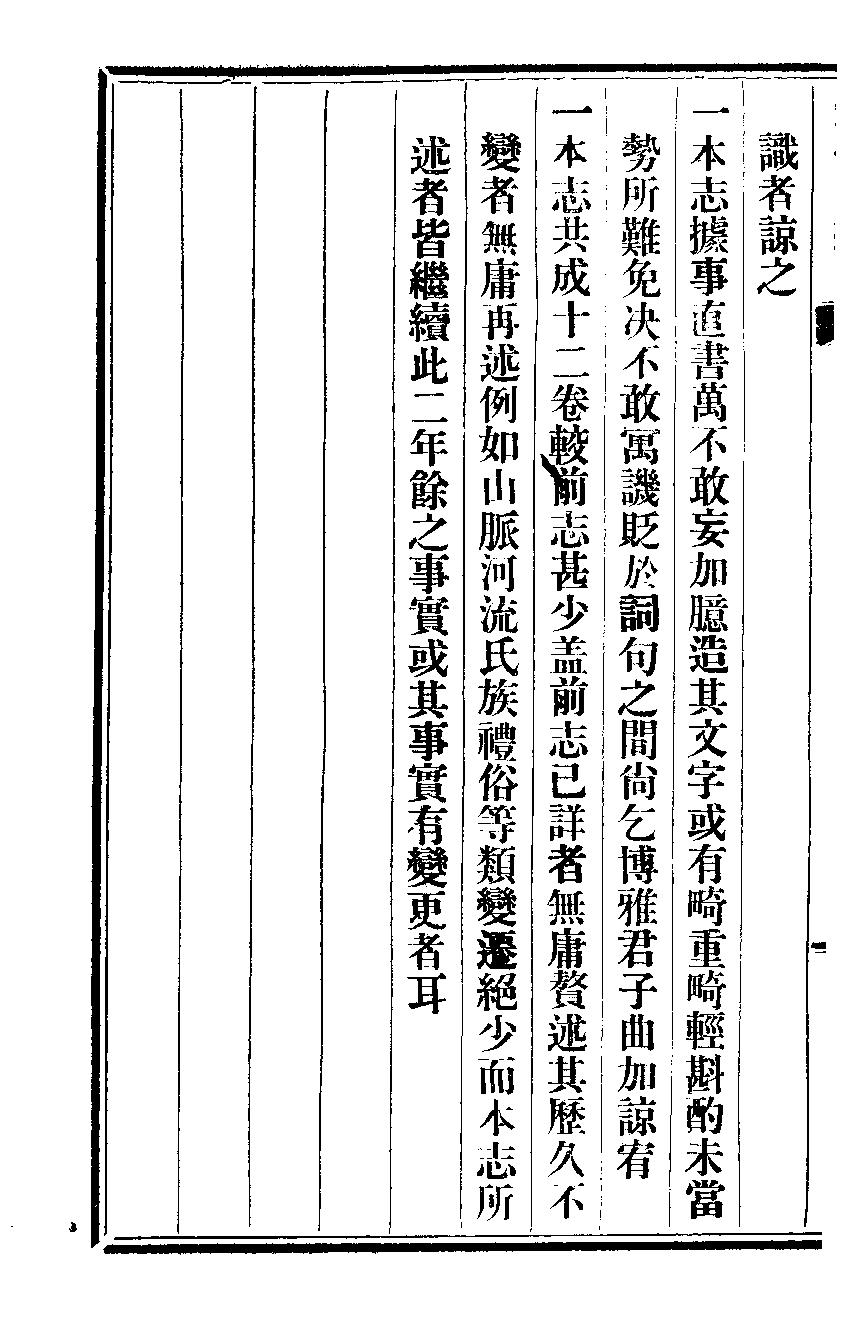 識者諒之
一本志據事直書萬不敢妄加臆造其文字或有畸重畸輕斟酌未當
勢所難免决不敢寓譏貶於詞句之間尙乞博雅君子曲加諒宥
一本志共成十二卷較前志甚少盖前志已詳者無庸贅述其歷久不
變者無庸再述例如山脈河流氏族禮俗等類變遷絕少而本志所
述者皆繼續此二年餘之事實或其事實有變更者耳